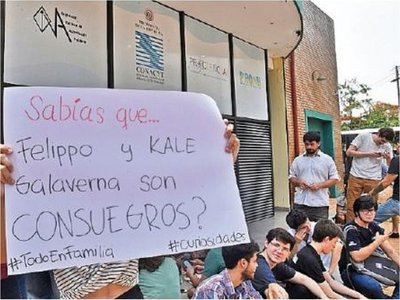 CONACYT
Sabías que...
Felippo y KALE
Galaverna son
CONSUEGROS?
#TodoEnFamilia
#Curiosidades